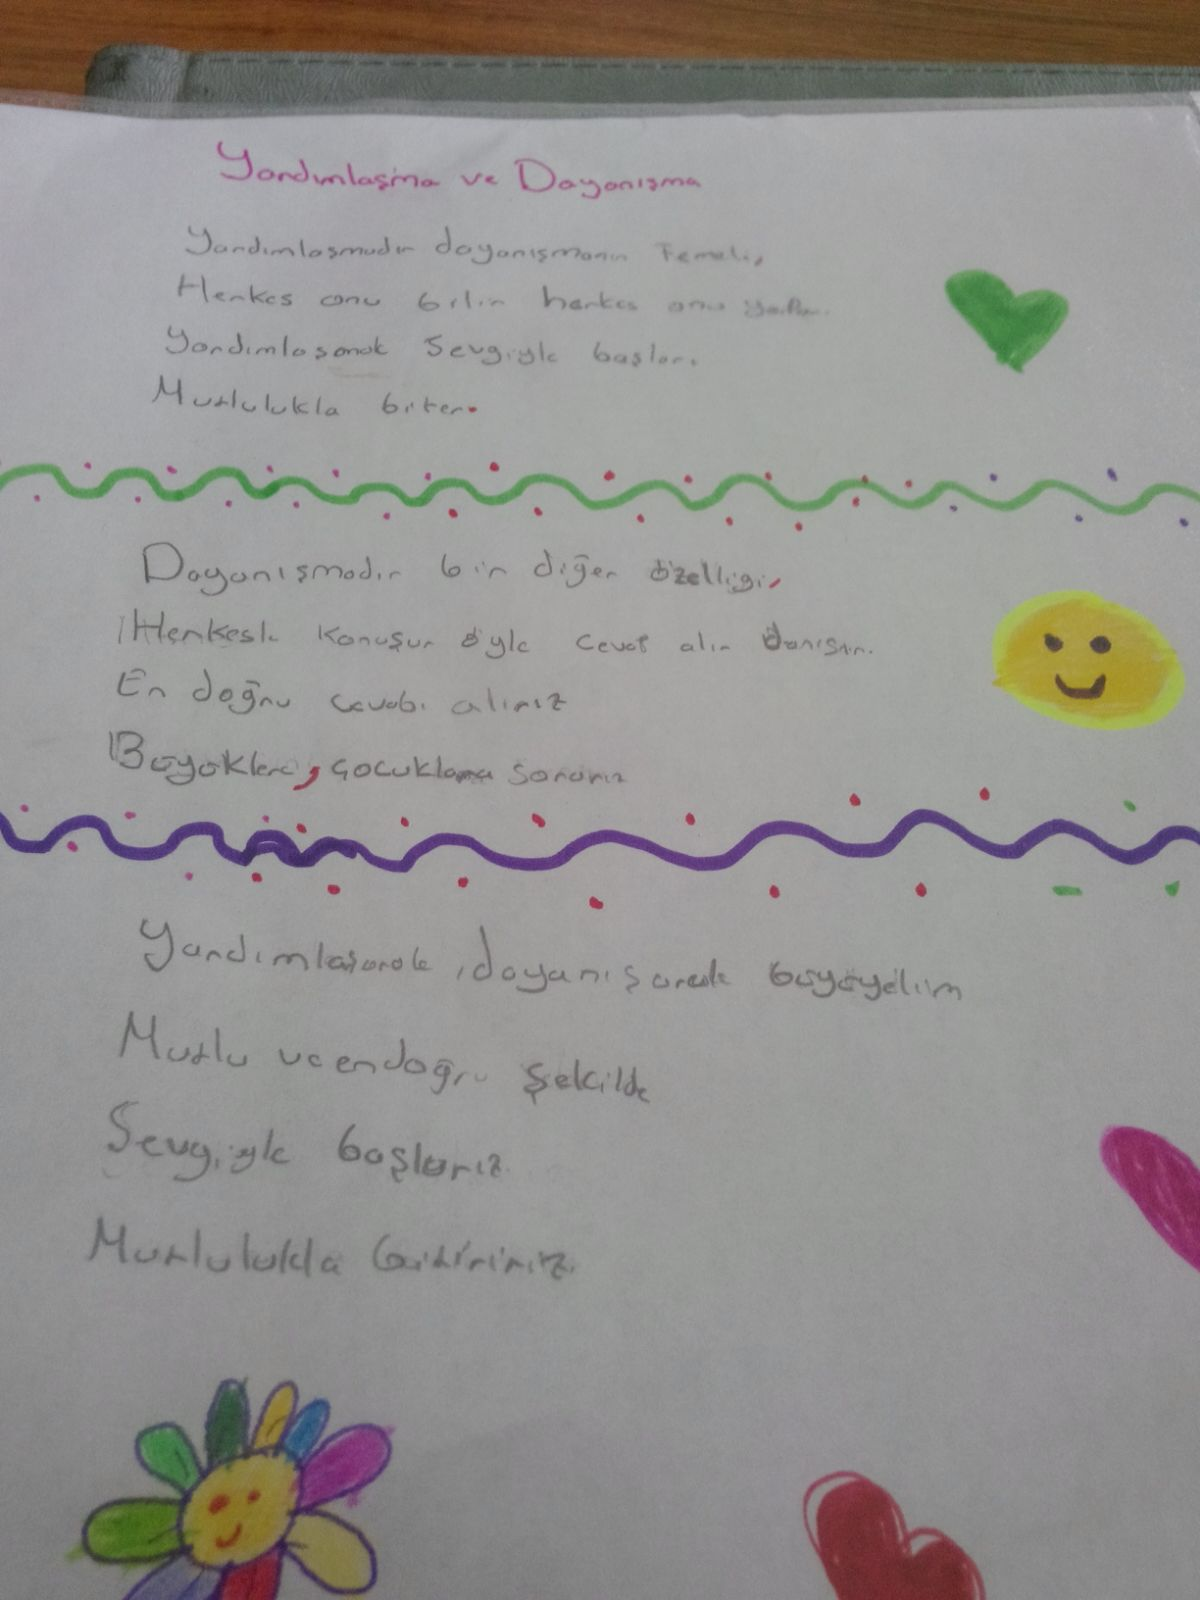 Yardımlaşma ve Dayanışma
Yardımlaşmadır dayanışmanın Temeli,
Herkes onu bilir herkes onu yapar.
Yardımlaşmak Sevgiyle başlar.
Mutlulukla biter.
Dayanışmadır bir diğer özelligi,
Herkesle konuşur öyle cevap alır Danışır.
En doğru cevabı alırız
Büyüklere, çocuklara sorarız
Yardımlaşarak, dayanışarak büyüyelim
Mutlu ve en doğru Şekilde
Sevgiyle başlarız
Mutlulukla bitiririz.